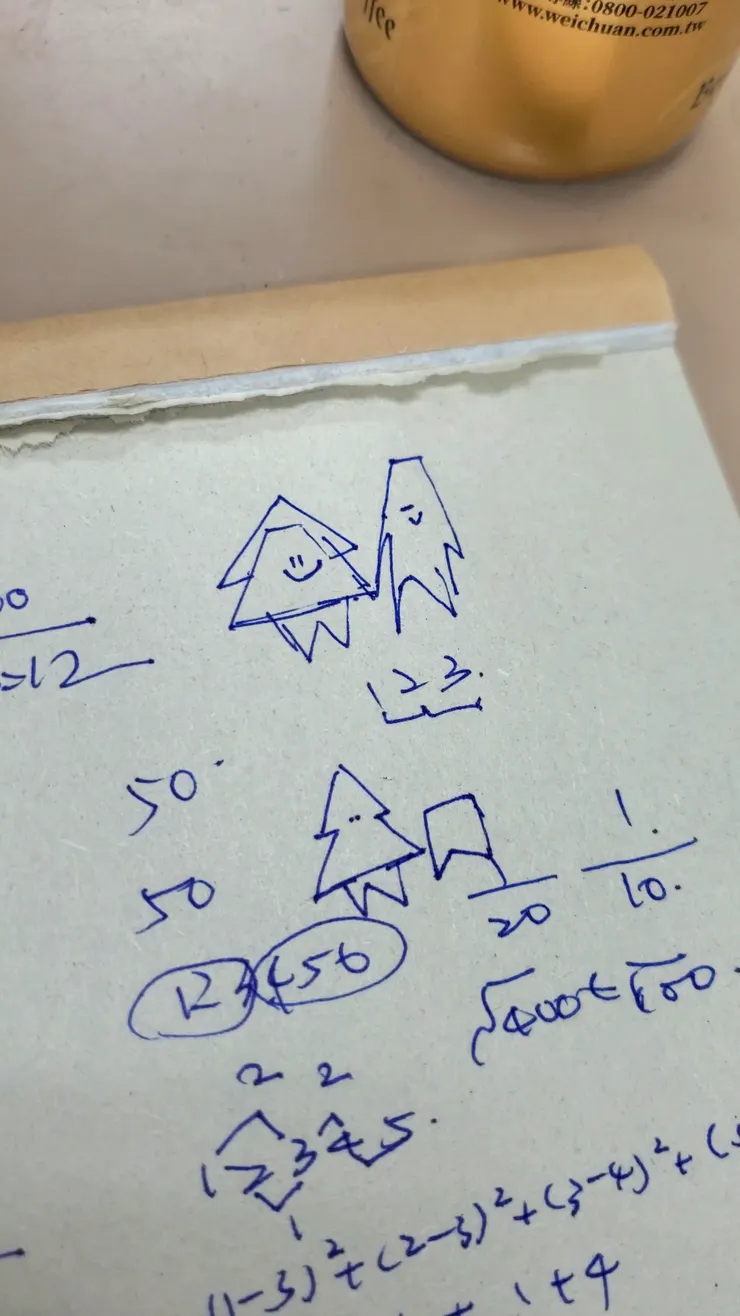 :0800-021007
www.weichuan.com.tw
=12
1 2 3.
50.
1.
10.
50
20
1 2 3 4 5 6
√400
2 2
1 2 3 4 5.
1
(1-3)² + (2-3)² + (3-4)² + (
+ 1 + 4